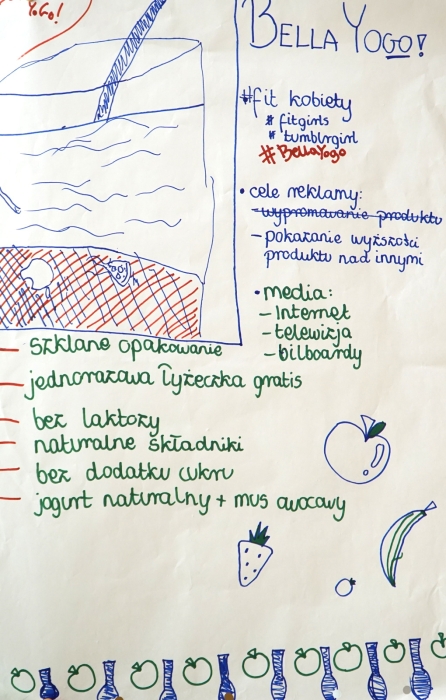 YoGo!
BELLA YOGO!
#fit kobiety
# fitgirls
# tumblrgirl
# BellaYogo
• cele reklamy:
- wypromowanie produktu
- pokazanie wyższości
produktu nad innymi
• media:
- Internet
- telewizja
- bilboardy
- szklane opakowanie
- jednorazowa łyżeczka gratis
- bez laktozy
- naturalne składniki
- bez dodatku cukru
- jogurt naturalny + mus owocowy